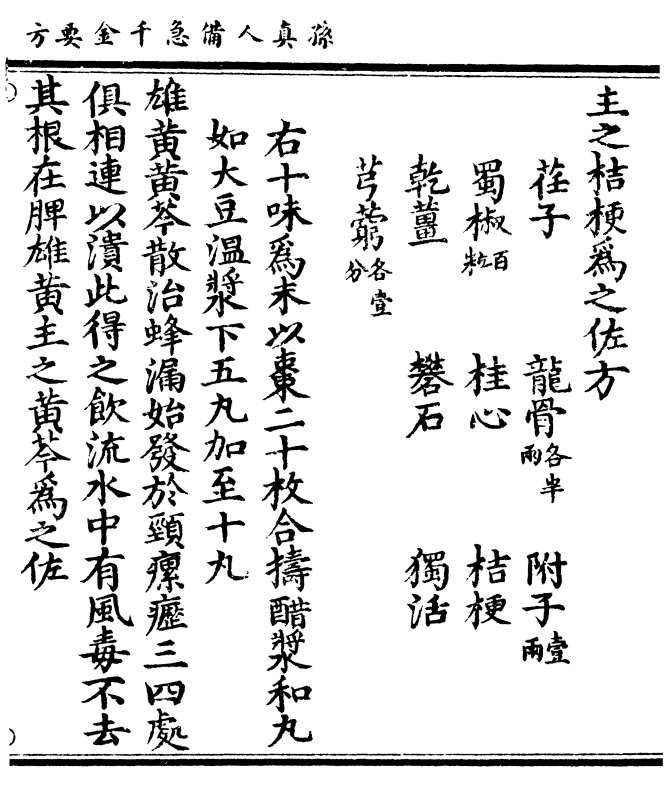 孫真人備急千金要方
主之桔梗爲之佐方
荏子　龍骨各半兩　附子壹兩
蜀椒百粒　桂心　桔梗
乾薑　礬石　獨活
芎藭各壹分
右十味爲末以棗二十枚合擣醋漿和丸
如大豆溫漿下五丸加至十丸
雄黃黃芩散治蜂漏始發於頸瘰癧三四處
俱相連以潰此得之飲流水中有風毒不去
其根在脾雄黃主之黃芩爲之佐